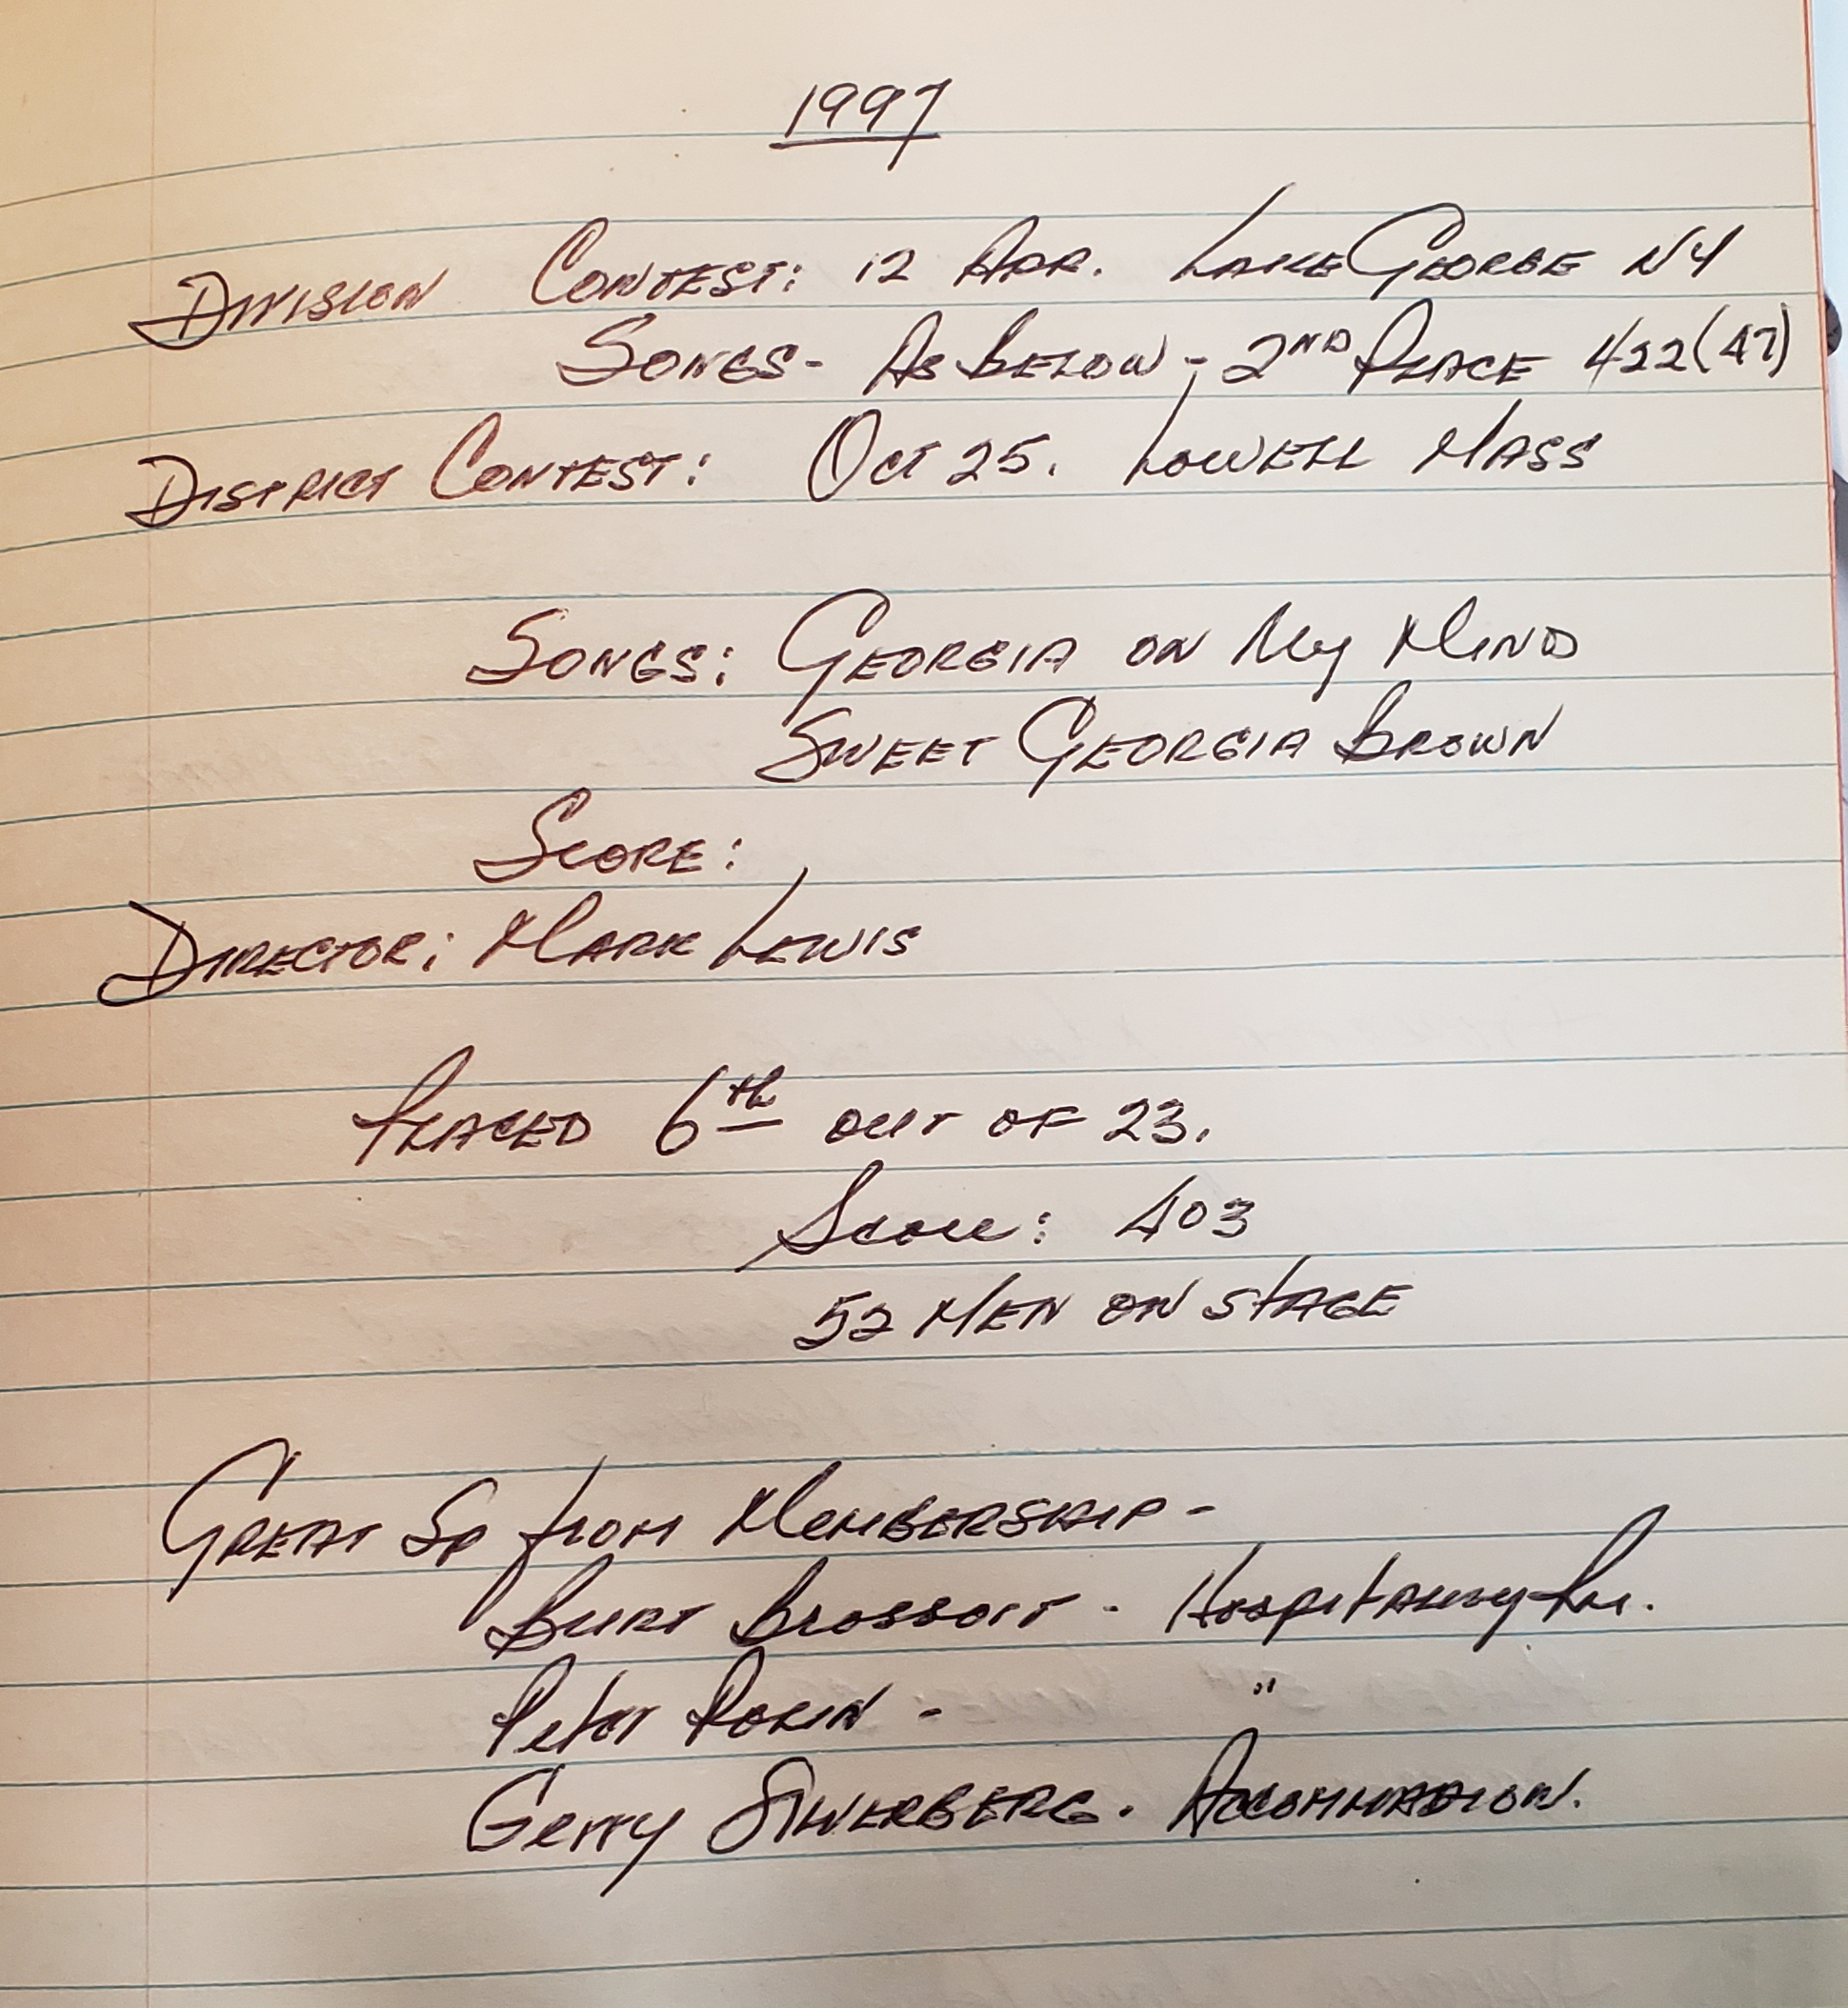 1997
Division Contest: 12 Apr. Lake George NY
Songs - As Below - 2nd Place 422 (47)
District Contest: Oct 25. Lowell Mass
Songs: Georgia on My Mind
Sweet Georgia Brown
Score:
Director: Mark Lewis
Placed 6th out of 23.
Score: 403
52 Men on Stage
Great Sp from Membership -
Burt Brossoit - Hospitality Rm.
Peter -  "
Gerry Silverberg. Accommadion.